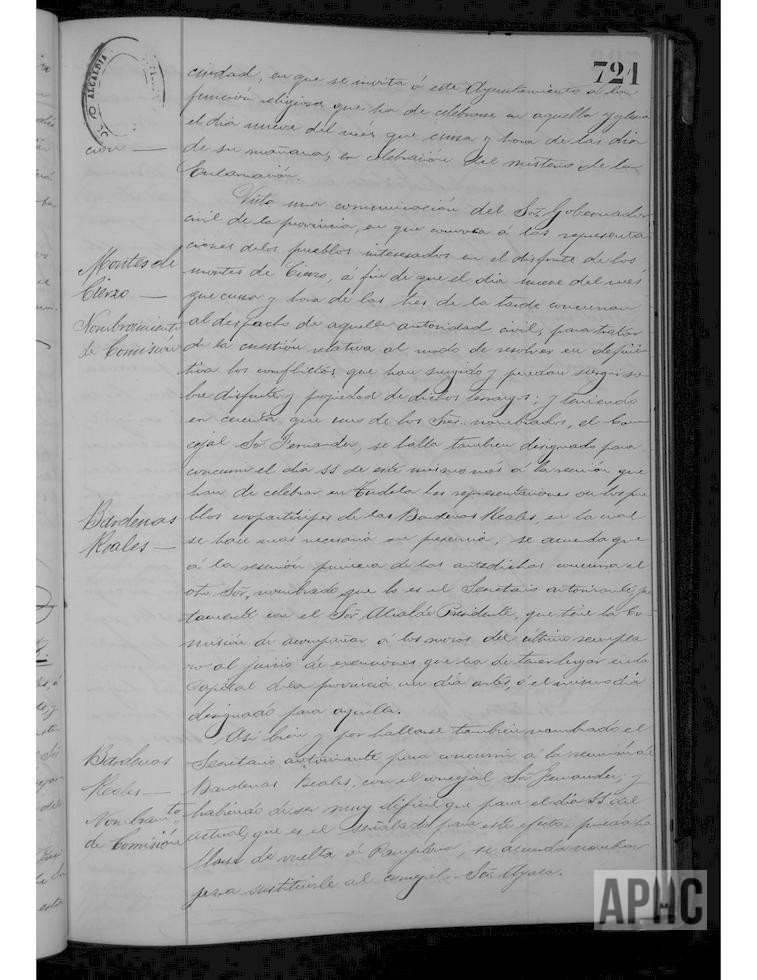 721
ALCALDIA
ciudad, en que se invita á este Ayuntamiento á la
función religiosa que ha de celebrarse en aquella Yglesia
el dia nueve del mes que cursa y hora de las diez
cion —
de su mañana, en celebración del misterio de la
Encarnación.
Vista una comunicación del Sor. Gobernador
civil de la provincia, en que convoca á las representa
ciones de los pueblos interesados en el disfrute de los
Montes de
Cierzo —
montes de Cierzo, á fin de que el dia nueve del mes
que cursa y hora de las tres de la tarde concurran
Nombramiento
de Comisión
al despacho de aquella autoridad civil, para tratar
de la cuestión relativa al modo de resolver en defini
tiva los conflictos que han surgido y puedan surgir so
bre disfrute y propiedad de dichos terrenos; y teniendo
en cuenta que uno de los Sres. nombrados, el Con
cejal Sor. Fernandez, se halla tambien designado para
concurrir el dia 11 de este mismo mes á la reunión que
han de celebrar en Tudela las representaciones de los pue
Bardenas
Reales —
blos compartícipes de las Bardenas Reales, en la cual
se hace mas necesaria su presencia, se acuerda que
á la reunión primera de las antedichas concurra el
otro Sor. nombrado, que lo es el Secretario autorizante, jun
tamente con el Sor. Alcalde Presidente, que tiene la Co
misión de acompañar á los mozos del último reempla
zo al juicio de exenciones que ha de tener lugar en la
Capital de la provincia un dia antes, ó el mismo dia
designado para aquella.
Así bien y por hallarse tambien nombrado el
Bardenas
Reales —
Secretario autorizante para concurrir á la reunión de
Bardenas Reales, con el concejal Sor. Fernandez; y
Nombramto.
de Comisión
habiendo de ser muy dificil que para el dia 11 del
actual, que es el señalado para este efecto, pueda ha
llarse de vuelta de Pamplona, se acuerda nombrar
para sustituirle al concejal Sor. Ayala.
APHC